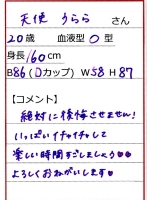 天使 うらら さん
20歳 血液型 O型
身長 160cm
B86(Dカップ) W58 H87
【コメント】
絶対に後悔させません!
いっぱいイチャイチャして
楽しい時間すごしましょう♥♥
よろしくおねがいします♥